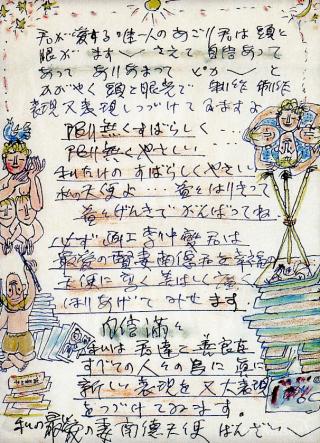 君が愛する唯一人のあごり君は頭と
眼が ます〜 さえて 自信あって
あって ありあまって ピカ〜 と
かがやく 頭と眼光で 制作 制作
表現又表現しつづけてゐますよ
限り無くすばらしく・・・
限り無くやさしい ・・・
私だけの すばらしくやさしい
私の天使よ・・・ 益々はりきって
益々げんきで がんばってね
必ず 画工 李仲燮君は
最愛の 妻南徳を 幸福の
天使に 美しく
はりあげて みせ ます
自信満々
私は 君達と 善良な
すべての人々の為に 真に
新しい表現を 又 大表現
をつづけてゐます。
私の最愛の妻南徳天使 ばんざい〜